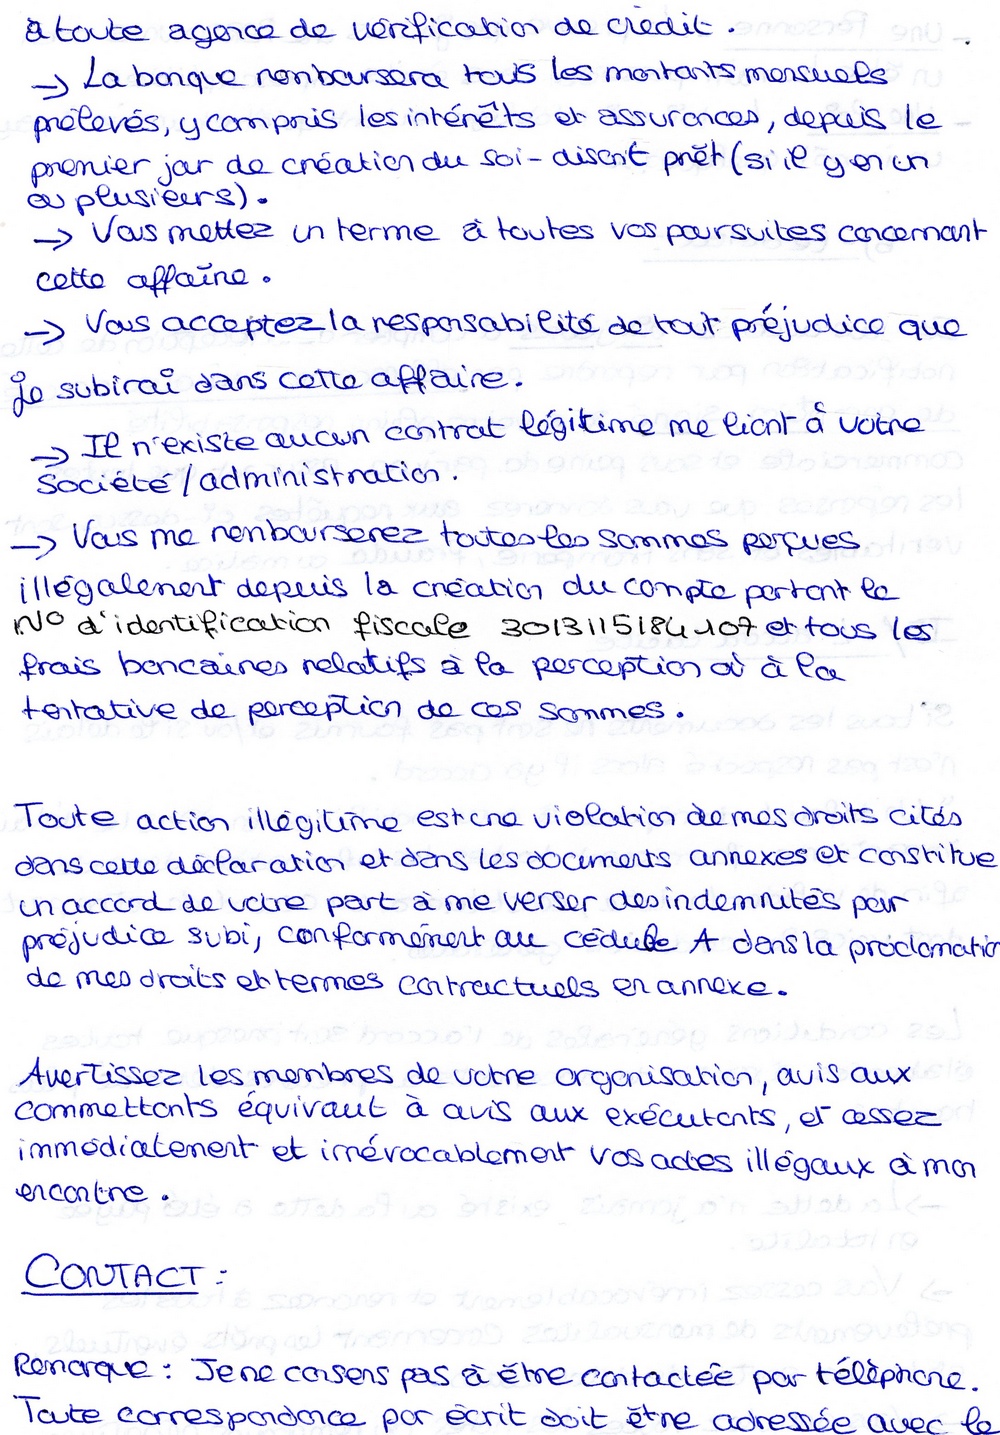 à toute agence de vérification de crédit.
→ La banque remboursera tous les montants mensuels
prélevés, y compris les intérêts et assurances, depuis le
premier jour de création du soi-disant prêt (si il y en un
ou plusieurs).
→ Vous mettez un terme à toutes vos poursuites concernant
cette affaire.
→ Vous acceptez la responsabilité de tout préjudice que
je subirai dans cette affaire.
→ Il n'existe aucun contrat légitime me liant à votre
société/administration.
→ Vous me rembourserez toutes les sommes perçues
illégalement depuis la création du compte portant le
N° d'identification fiscale 3013115184107 et tous les
frais bancaires relatifs à la perception où à la
tentative de perception de ces sommes.
Toute action illégitime est une violation de mes droits cités
dans cette déclaration et dans les documents annexes et constitue
un accord de votre part à me verser des indemnités pour
préjudice subi, conformément au cédule A dans la proclamation
de mes droits et termes contractuels en annexe.
Avertissez les membres de votre organisation, avis aux
commettants équivaut à avis aux exécutants, et cessez
immédiatement et irrévocablement vos actes illégaux à mon
encontre.
CONTACT :
Remarque : Je ne consens pas à être contactée par téléphone.
Toute correspondance par écrit doit être adressée avec le